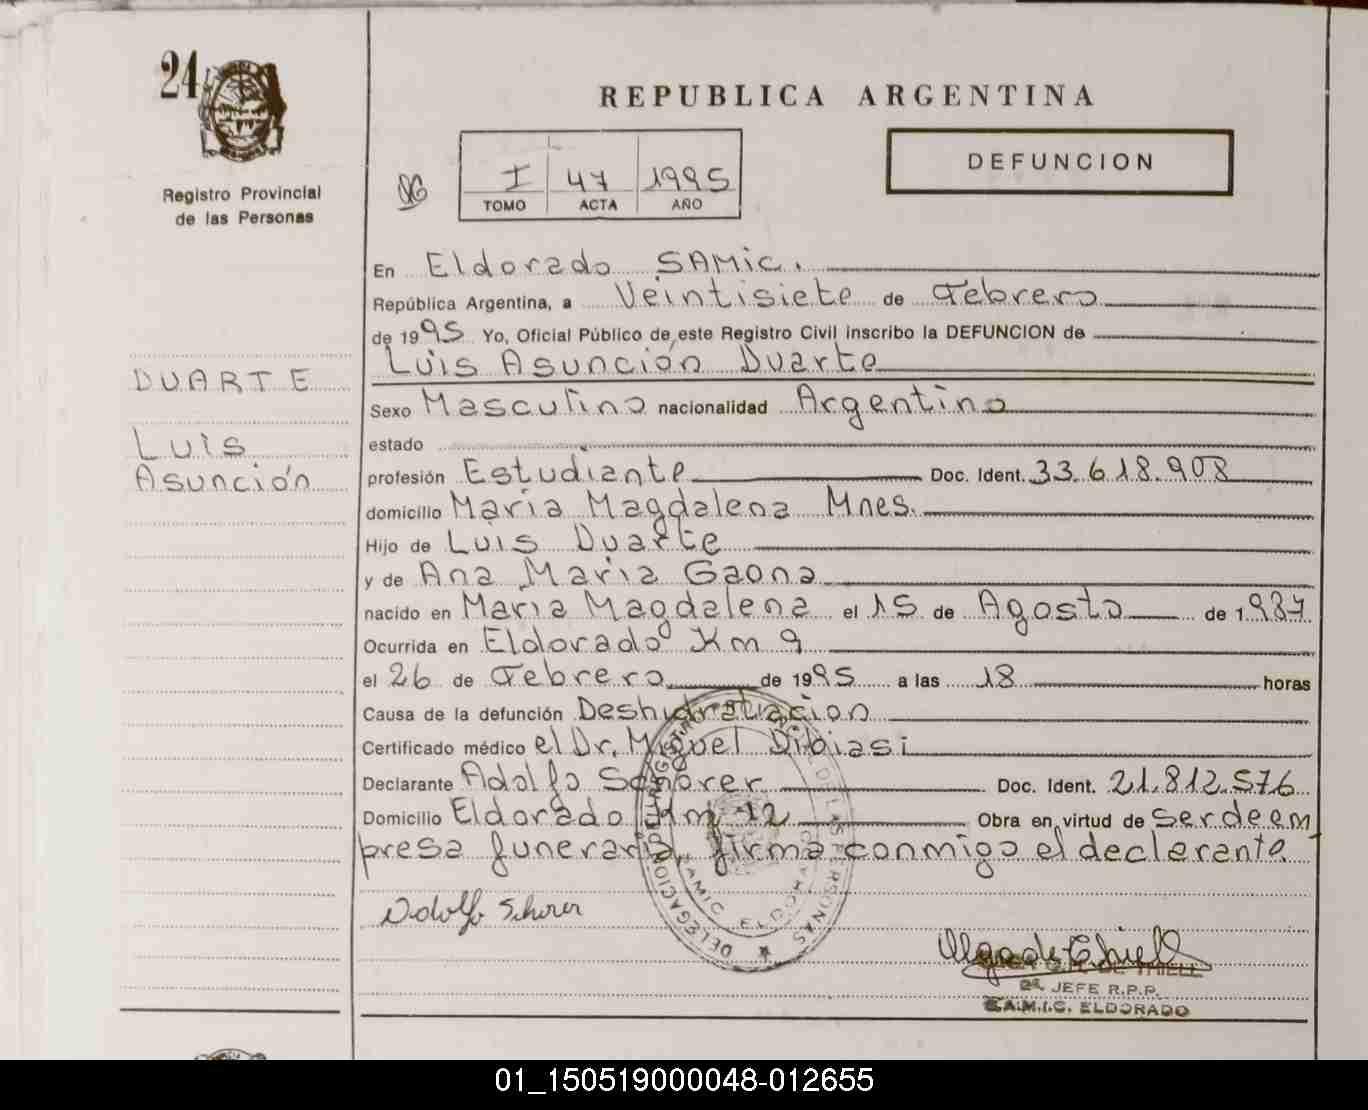 24
Registro Provincial
de las Personas
DUARTE
Luis
Asunción
REPUBLICA ARGENTINA
I 47 1995
TOMO ACTA AÑO
DEFUNCION
En Eldorado SAMic.
República Argentina, a Veintisiete de Febrero
de 1995 Yo, Oficial Público de este Registro Civil inscribo la DEFUNCION de
Luis Asunción Duarte
Sexo Masculino nacionalidad Argentino
estado
profesión Estudiante Doc. Ident. 33.618.908
domicilio María Magdalena Mnes.
Hijo de Luis Duarte
y de Ana Maria Gaona
nacido en María Magdalena el 15 de Agosto de 1987
Ocurrida en Eldorado Km 9
el 26 de Febrero de 1995 a las 18 horas
Causa de la defunción Deshidratación
Certificado médico el Dr. Miguel Dibiasi
Declarante Adolfo Scherer Doc. Ident. 21.812.576
Domicilio Eldorado Km 12 Obra en virtud de Ser de em
presa funeraria, firma conmigo el declarante
Adolfo Scherer
DE THIELL
2a. JEFE R.P.P.
S.A.M.I.C. ELDORADO
DELEGACION DEL REGISTRO PROVINCIAL DE LAS PERSONAS
SAMIC ELDORADO
01_150519000048-012655